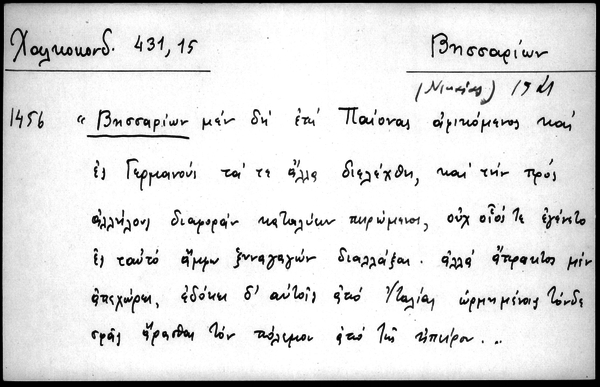 Χαλκοκονδ. 431,15
Βησσαρίων
(Νικαίας)
1456 « Βησσαρίων μέν δή ἐπί Παίονας ἀφικόμενος καί
ἐς Γερμανούς τά τε ἄλλα διελέχθη, καί τήν πρός
ἀλλήλους διαφοράν καταλύειν πειρώμενος, οὐχ οἷός τε ἐγένετο
ἐς ταὐτό ἄμφω ξυναγαγών διαλλάξαι. ἀλλά ἄπρακτος μέν
ἀπεχώρει, ἐδόκει δ' αὐτοῖς ἀπό Ἰταλίας ὡρμημένοις τόνδε
σφᾶς ἄρασθαι τόν πόλεμον ἀπό τῆς ἠπείρου...